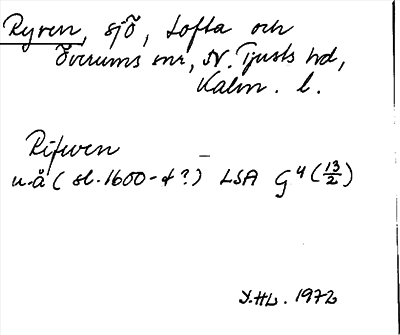 Ryven, sjö, Lofta och
Överums snr, N. Tjusts hd,
Kalm. l.
Rifwen
u.å (sl. 1600-t ?) LSA G⁴ (13/2)
Y.HL. 1972